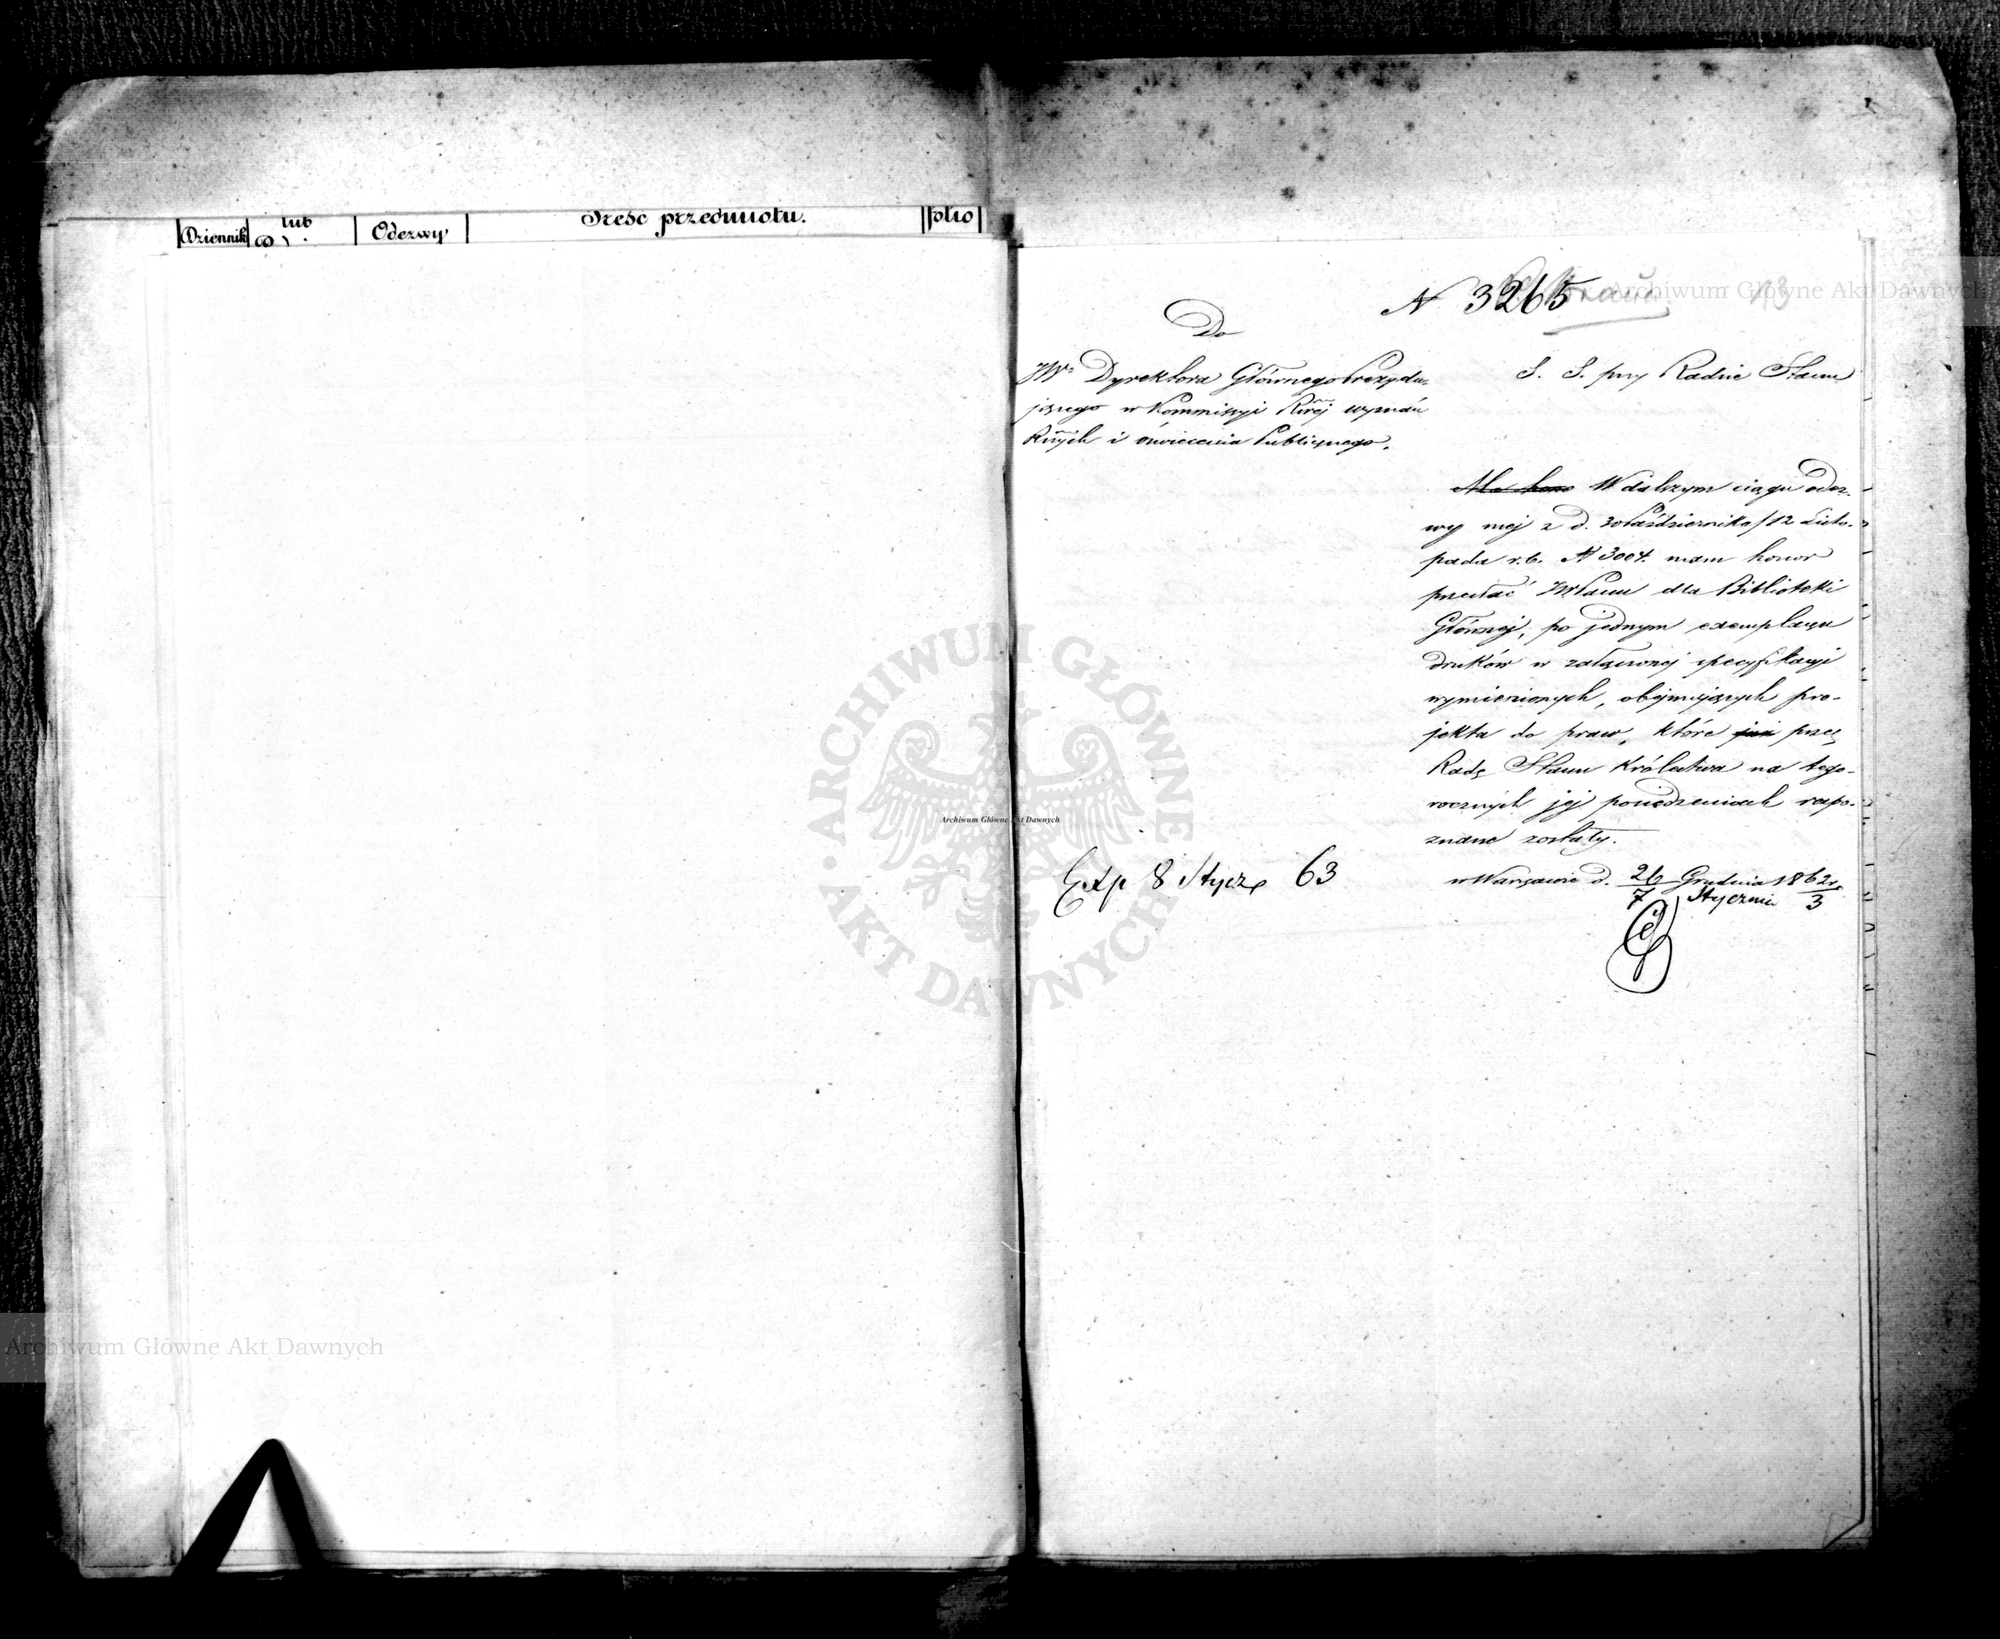 lub
Dziennik
Odezwy
Treść przedmiotu.
folio
N 3265
Do
JW. Dyrektora Głównego Prezydu-
jącego w Kommissyi Rząj wyznań
Rnych i oświecenia Publicznego.
S. S. przy Radzie Stanu
W dalszym ciągu odez-
wy mej z d. 30 Października/12 Listo-
pada r.b. N 3004. mam honor
przesłać JWPanu dla Biblioteki
Głównej, po jednym exemplarzu
druków w załączonej specyfikacyi
wymienionych, obejmujących pro-
jekta do praw, które już przez
Radę Stanu Królestwa na tego-
rocznych jej posiedzeniach rozpo-
znane zostały.
w Warszawie d. 26/7 Grudnia/Stycznia 1862/3 r.
Exp 8 Stycz 63
Archiwum Główne Akt Dawnych
ARCHIWUM GŁÓWNE
AKT DAWNYCH
Archiwum Główne Akt Dawnych
Archiwum Główne Akt Dawnych